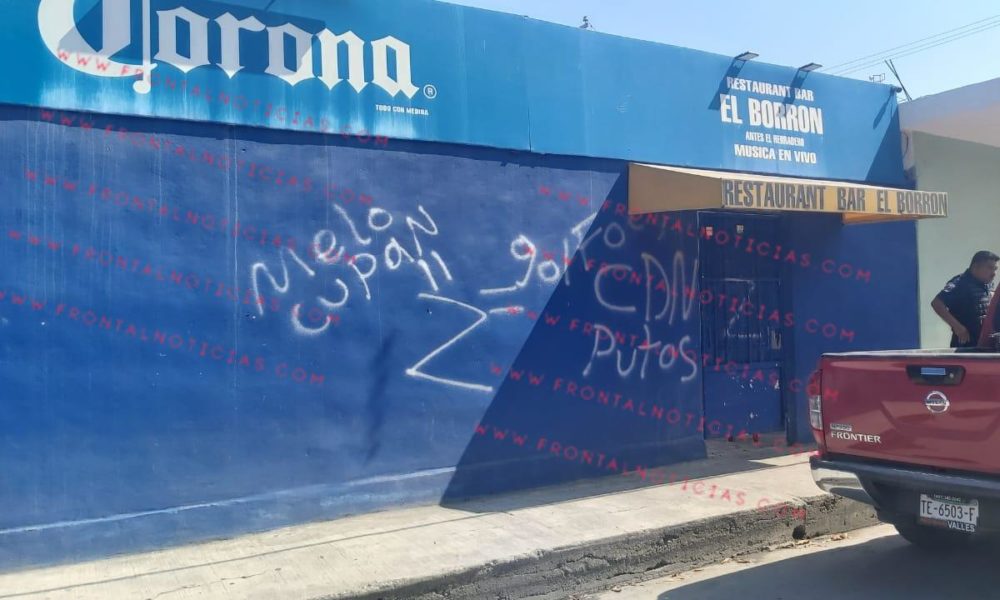 Corona
TODO CON MEDIDA
RESTAURANT BAR
EL BORRON
ANTES EL HERRADERO
MUSICA EN VIVO
RESTAURANT BAR EL BORRON
Melon
cupan
Z
CDN
Putos
FRONTIER
TE-6503-F
VALLES
WWW.FRONTALNOTICIAS.COM